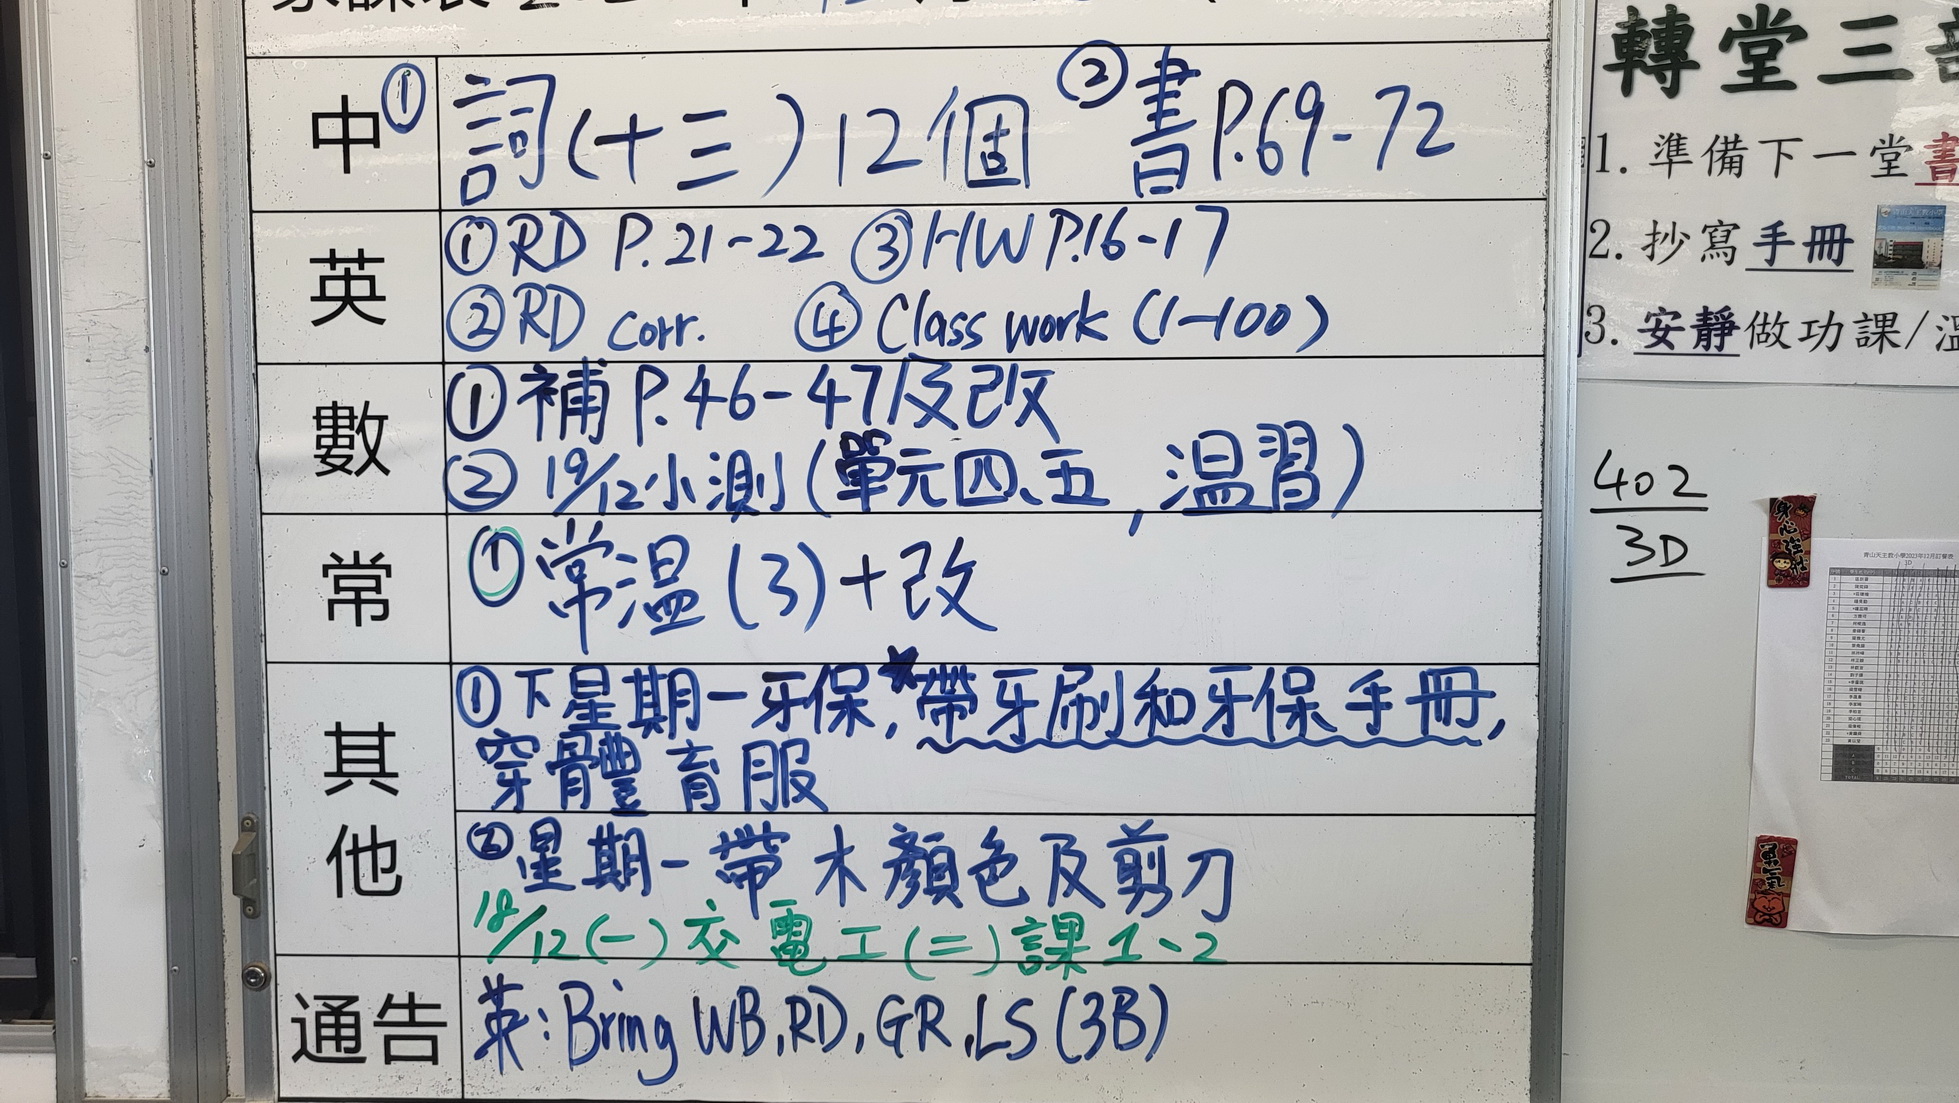 中 ① 詞(十三)12個 ② 書P.69-72
英 ① RD P.21-22 ③ HW P.16-17
② RD corr. ④ Class work (1-100)
數 ① 補 P.46-47及改
② 19/12小測(單元四、五,温習)
常 ① 常温(3)+改
其他 ① 下星期一牙保,*帶牙刷和牙保手冊,
穿體育服
② 星期一帶木顏色及剪刀
18/12(一)交電工(二)課1、2
通告 英:Bring WB,RD,GR,LS(3B)
轉堂三
1. 準備下一堂書
2. 抄寫手冊
3. 安靜做功課/溫
402
3D